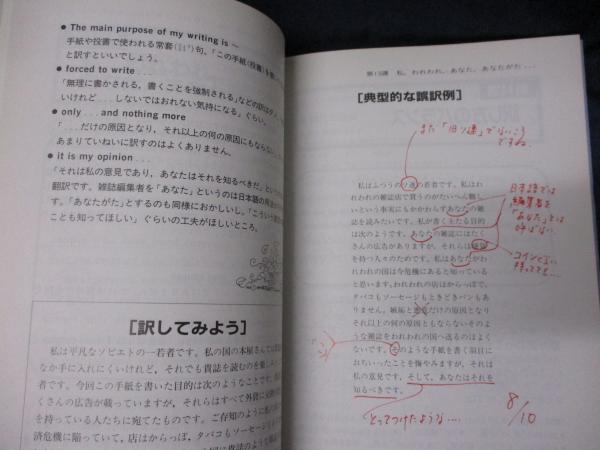 ● The main purpose of my writing is ～
手紙や投書で使われる常套句、「この手紙（投書）を
と訳すといいでしょう。
● forced to write . . .
「無理に書かされる，書くことを強制される」などの訳は
いけれど……しないではおれない気持になる」ぐらい。
● only ... and nothing more
「……だけの原因となり，それ以上の何の原因にもならない
あまりていねいに訳すのはよくありません。
● it is my opinion . . .
「それは私の意見であり，あなたはそれを知るべきだ」という
翻訳です。雑誌編集者を「あなた」というのは日本語の
す。「あなたがた」とするのも同様におかしいし，「こういう
ことも知ってほしい」ぐらいの工夫がほしいところ。
［訳してみよう］
私は平凡なソビエトの一若者です。私の国の本屋さんでは
なか手に入れにくいけれど，それでも貴誌を読むのを楽しみ
者です。今回この手紙を書いた目的は次のようなことです。
くさんの広告が載っていますが，それらはすべて外貨に
を持っている人たちに宛てたものです。ご存知のように
済危機に陥っていて，店はからっぽ，タバコもソーセージ
第15講 私，われわれ，あなた，あなたがた……
［典型的な誤訳例］
まだ「旧ソ連」でないころ
ですね。
私はふつうのソ連の若者です。私はわ
れわれの雑誌店で買うのがたいへん難し
いという事実にもかかわらずあなたの雑
誌を読みたいです。私が書く主たる目的
は次のようです。あなたの雑誌にはたく
さんの広告がありますが，それらは硬貨
を持つ人々のためです。私はあなたがわ
れわれの国は今危機にあると知っている
と思います。われわれの店はからっぽで，
タバコもソーセージもときどきパンもあ
りません。嫉妬と悪意だけの原因となり
それ以上の何の原因ともならないそのよ
うな雑誌をわれわれの国へ送るのはよく
ないです。そのような手紙を書く羽目に
おちいったことを悔やみますが，それは
私の意見です，そして，あなたはそれを
知るべきです。
日本語では
編集者を
「あなた」とは
呼ばない
コインなら
持ってても…
とってつけたような….
8/10